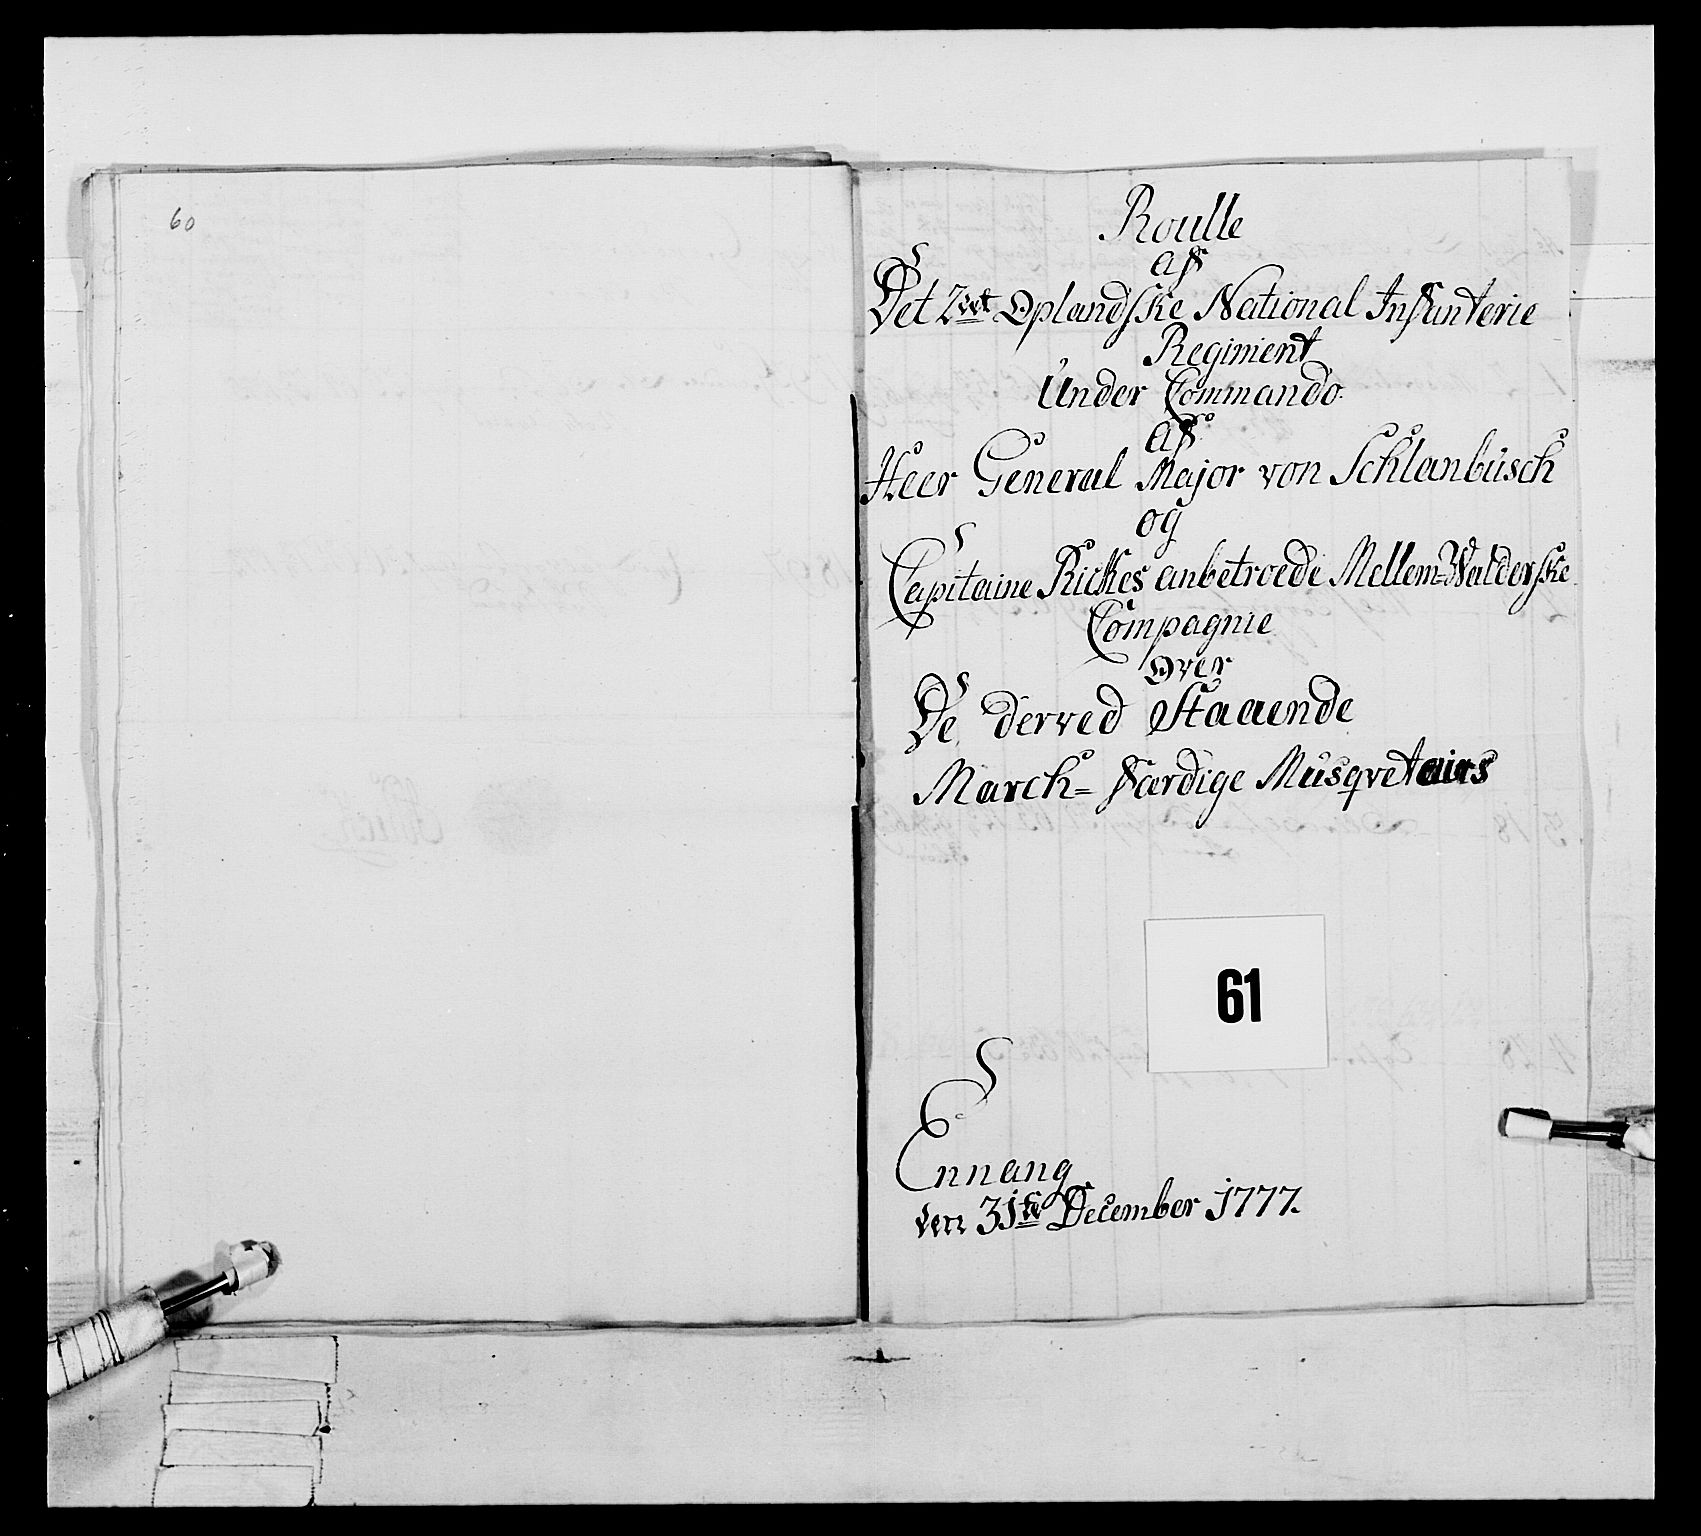 60
Roulle
af
Det 2det Oplandske National Infanterie
Regiment
Under Commando
af
Heer General Major von Schlanbusch
og
Capitaine Rickes anbetroede Mellem=Walderske
Compagnie
Over
De derved Staaende
March= færdige Musqvetairs
61
Ennang
den 31te December 1777.